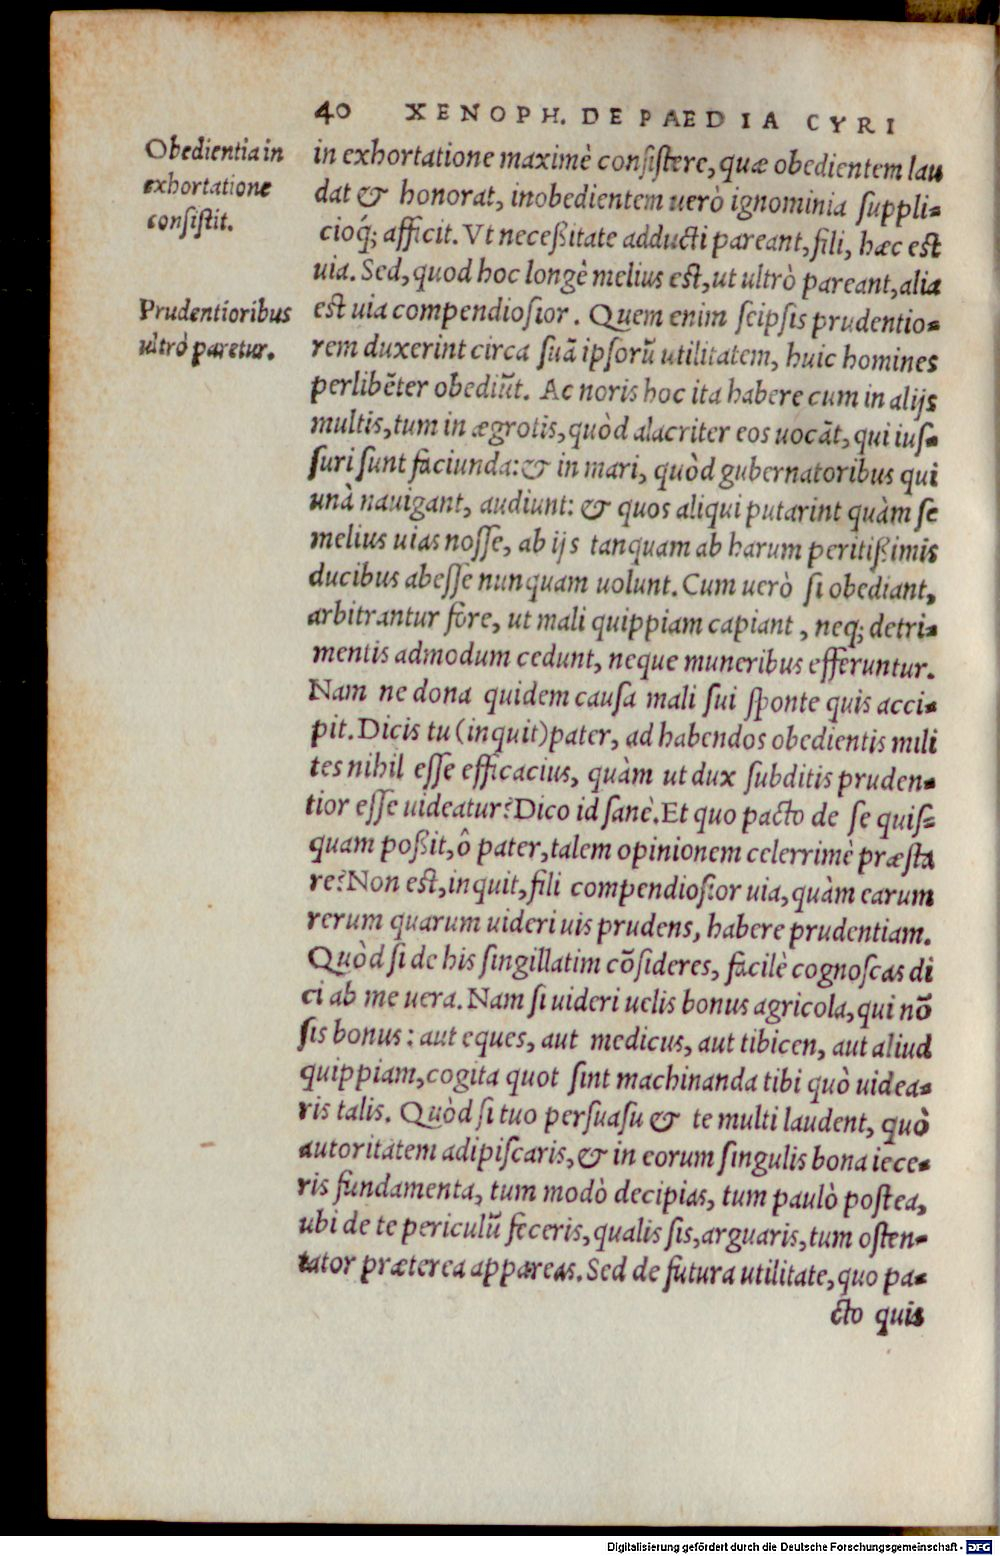 40 XENOPH. DE PAEDIA CYRI
Obedientia in
exhortatione
consistit.
Prudentioribus
ultrò paretur.
in exhortatione maximè consistere, quæ obedientem lau
dat & honorat, inobedientem uerò ignominia suppli-
cioq́; afficit. Vt neceßitate adducti pareant, fili, hæc est
uia. Sed, quod hoc longè melius est, ut ultrò pareant, alia
est uia compendiosior. Quem enim seipsis prudentio-
rem duxerint circa suā ipsorū utilitatem, huic homines
perlibēter obediūt. Ac noris hoc ita habere cum in alijs
multis, tum in ægrotis, quòd alacriter eos uocāt, qui ius-
suri sunt faciunda: & in mari, quòd gubernatoribus qui
unà nauigant, audiunt: & quos aliqui putarint quàm se
melius uias nosse, ab ijs tanquam ab harum peritißimis
ducibus abesse nunquam uolunt. Cum uerò si obediant,
arbitrantur fore, ut mali quippiam capiant, neq; detri-
mentis admodum cedunt, neque muneribus efferuntur.
Nam ne dona quidem causa mali sui sponte quis acci-
pit. Dicis tu (inquit) pater, ad habendos obedientis mili
tes nihil esse efficacius, quàm ut dux subditis pruden-
tior esse uideatur? Dico id sanè. Et quo pacto de se quis-
quam poßit, ô pater, talem opinionem celerrimè præsta
re? Non est, inquit, fili compendiosior uia, quàm earum
rerum quarum uideri uis prudens, habere prudentiam.
Quòd si de his singillatim cōsideres, facilè cognoscas di
ci ab me uera. Nam si uideri uelis bonus agricola, qui nō
sis bonus: aut eques, aut medicus, aut tibicen, aut aliud
quippiam, cogita quot sint machinanda tibi quò uidea-
ris talis. Quòd si tuo persuasu & te multi laudent, quò
autoritatem adipiscaris, & in eorum singulis bona iece-
ris fundamenta, tum modò decipias, tum paulò postea,
ubi de te periculū feceris, qualis sis, arguaris, tum osten-
tator præterea appareas. Sed de futura utilitate, quo pa-
cto quis
Digitalisierung gefördert durch die Deutsche Forschungsgemeinschaft - DFG